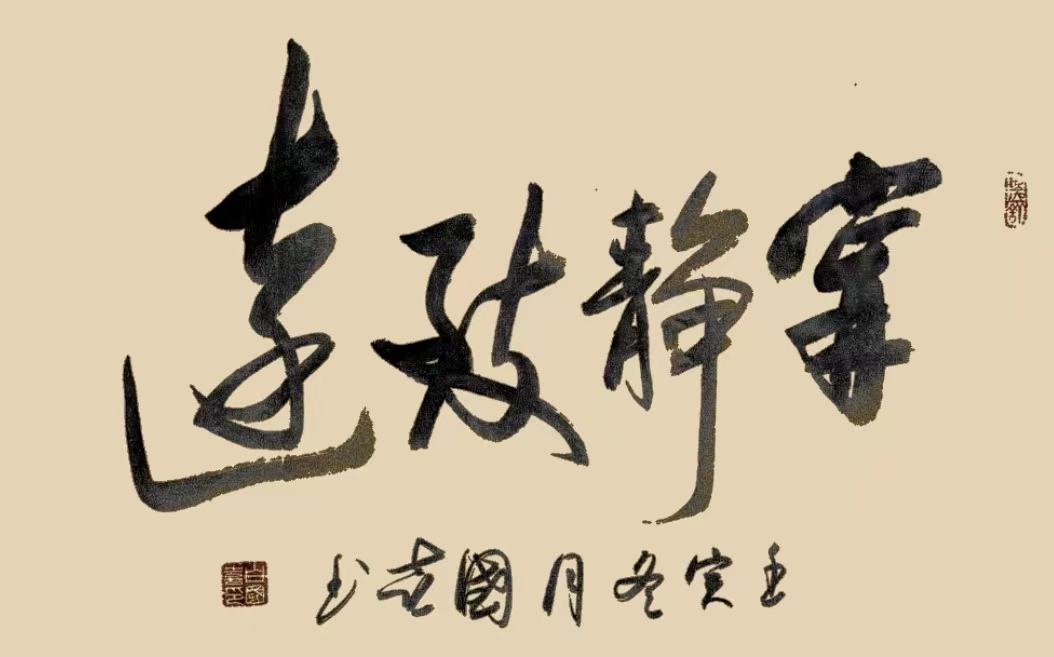 寧静致遠
壬寅冬月國书